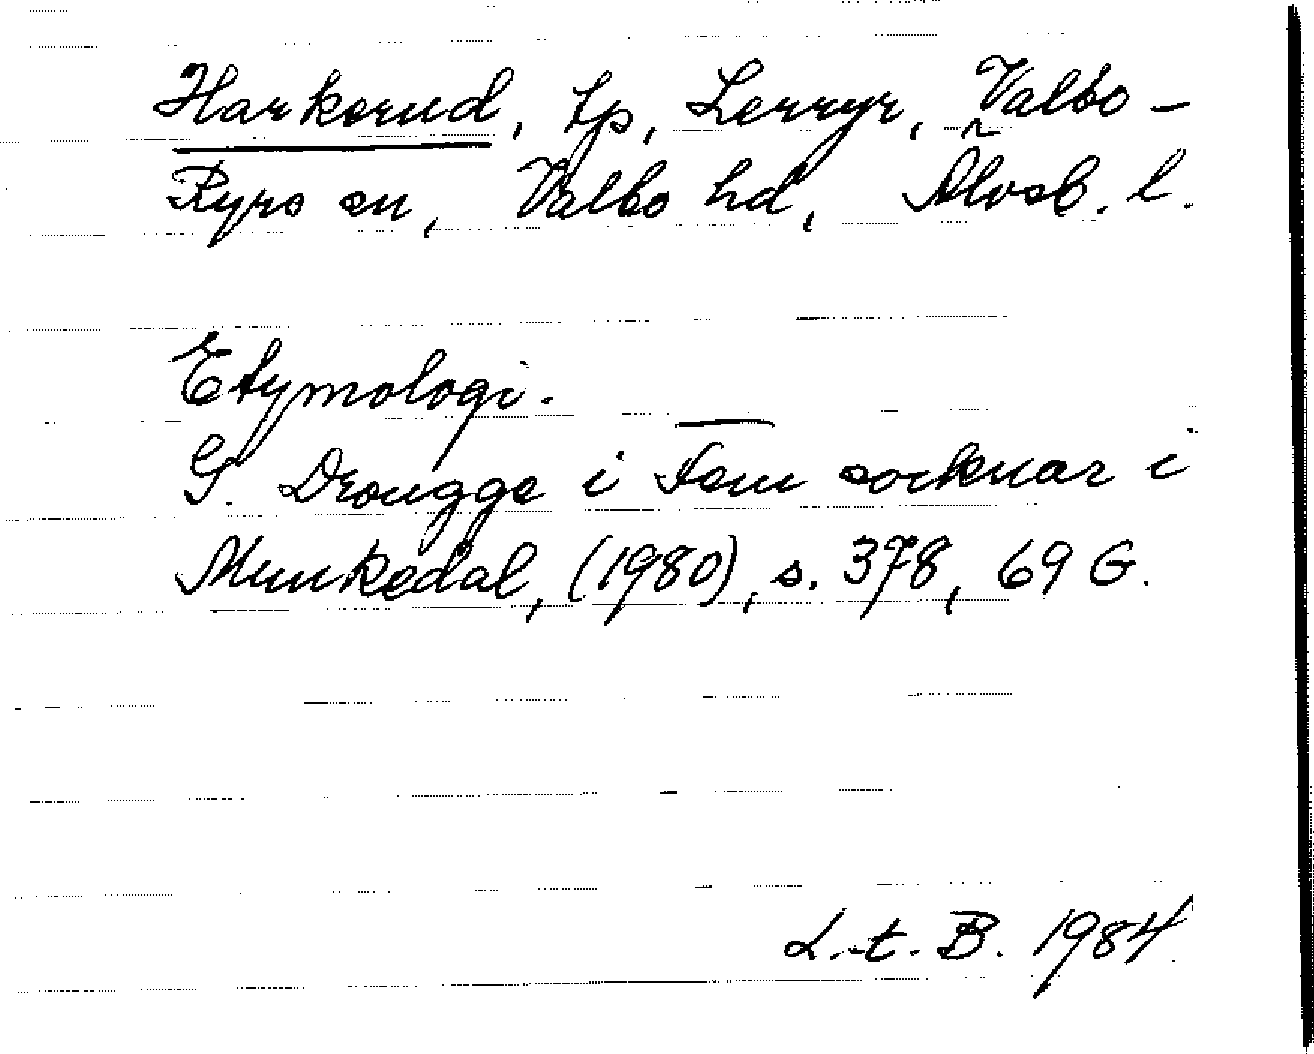 Harkerud, tp, Lerryr, Valbo-
Ryrs sn, Valbo hd, Älvsb. l.
Etymologi.
G. Drougge i Fem socknar i
Munkedal, (1980), s. 378, 69 G.
L.t. B. 1984.